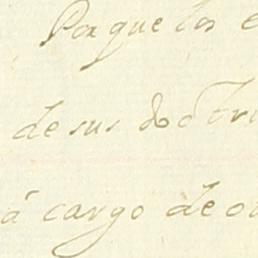 Porque los e
de sus doctri
á cargo de ot